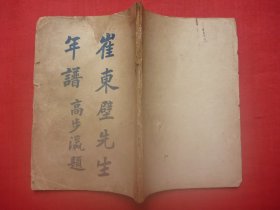 崔東壁先生
年譜 高步瀛題